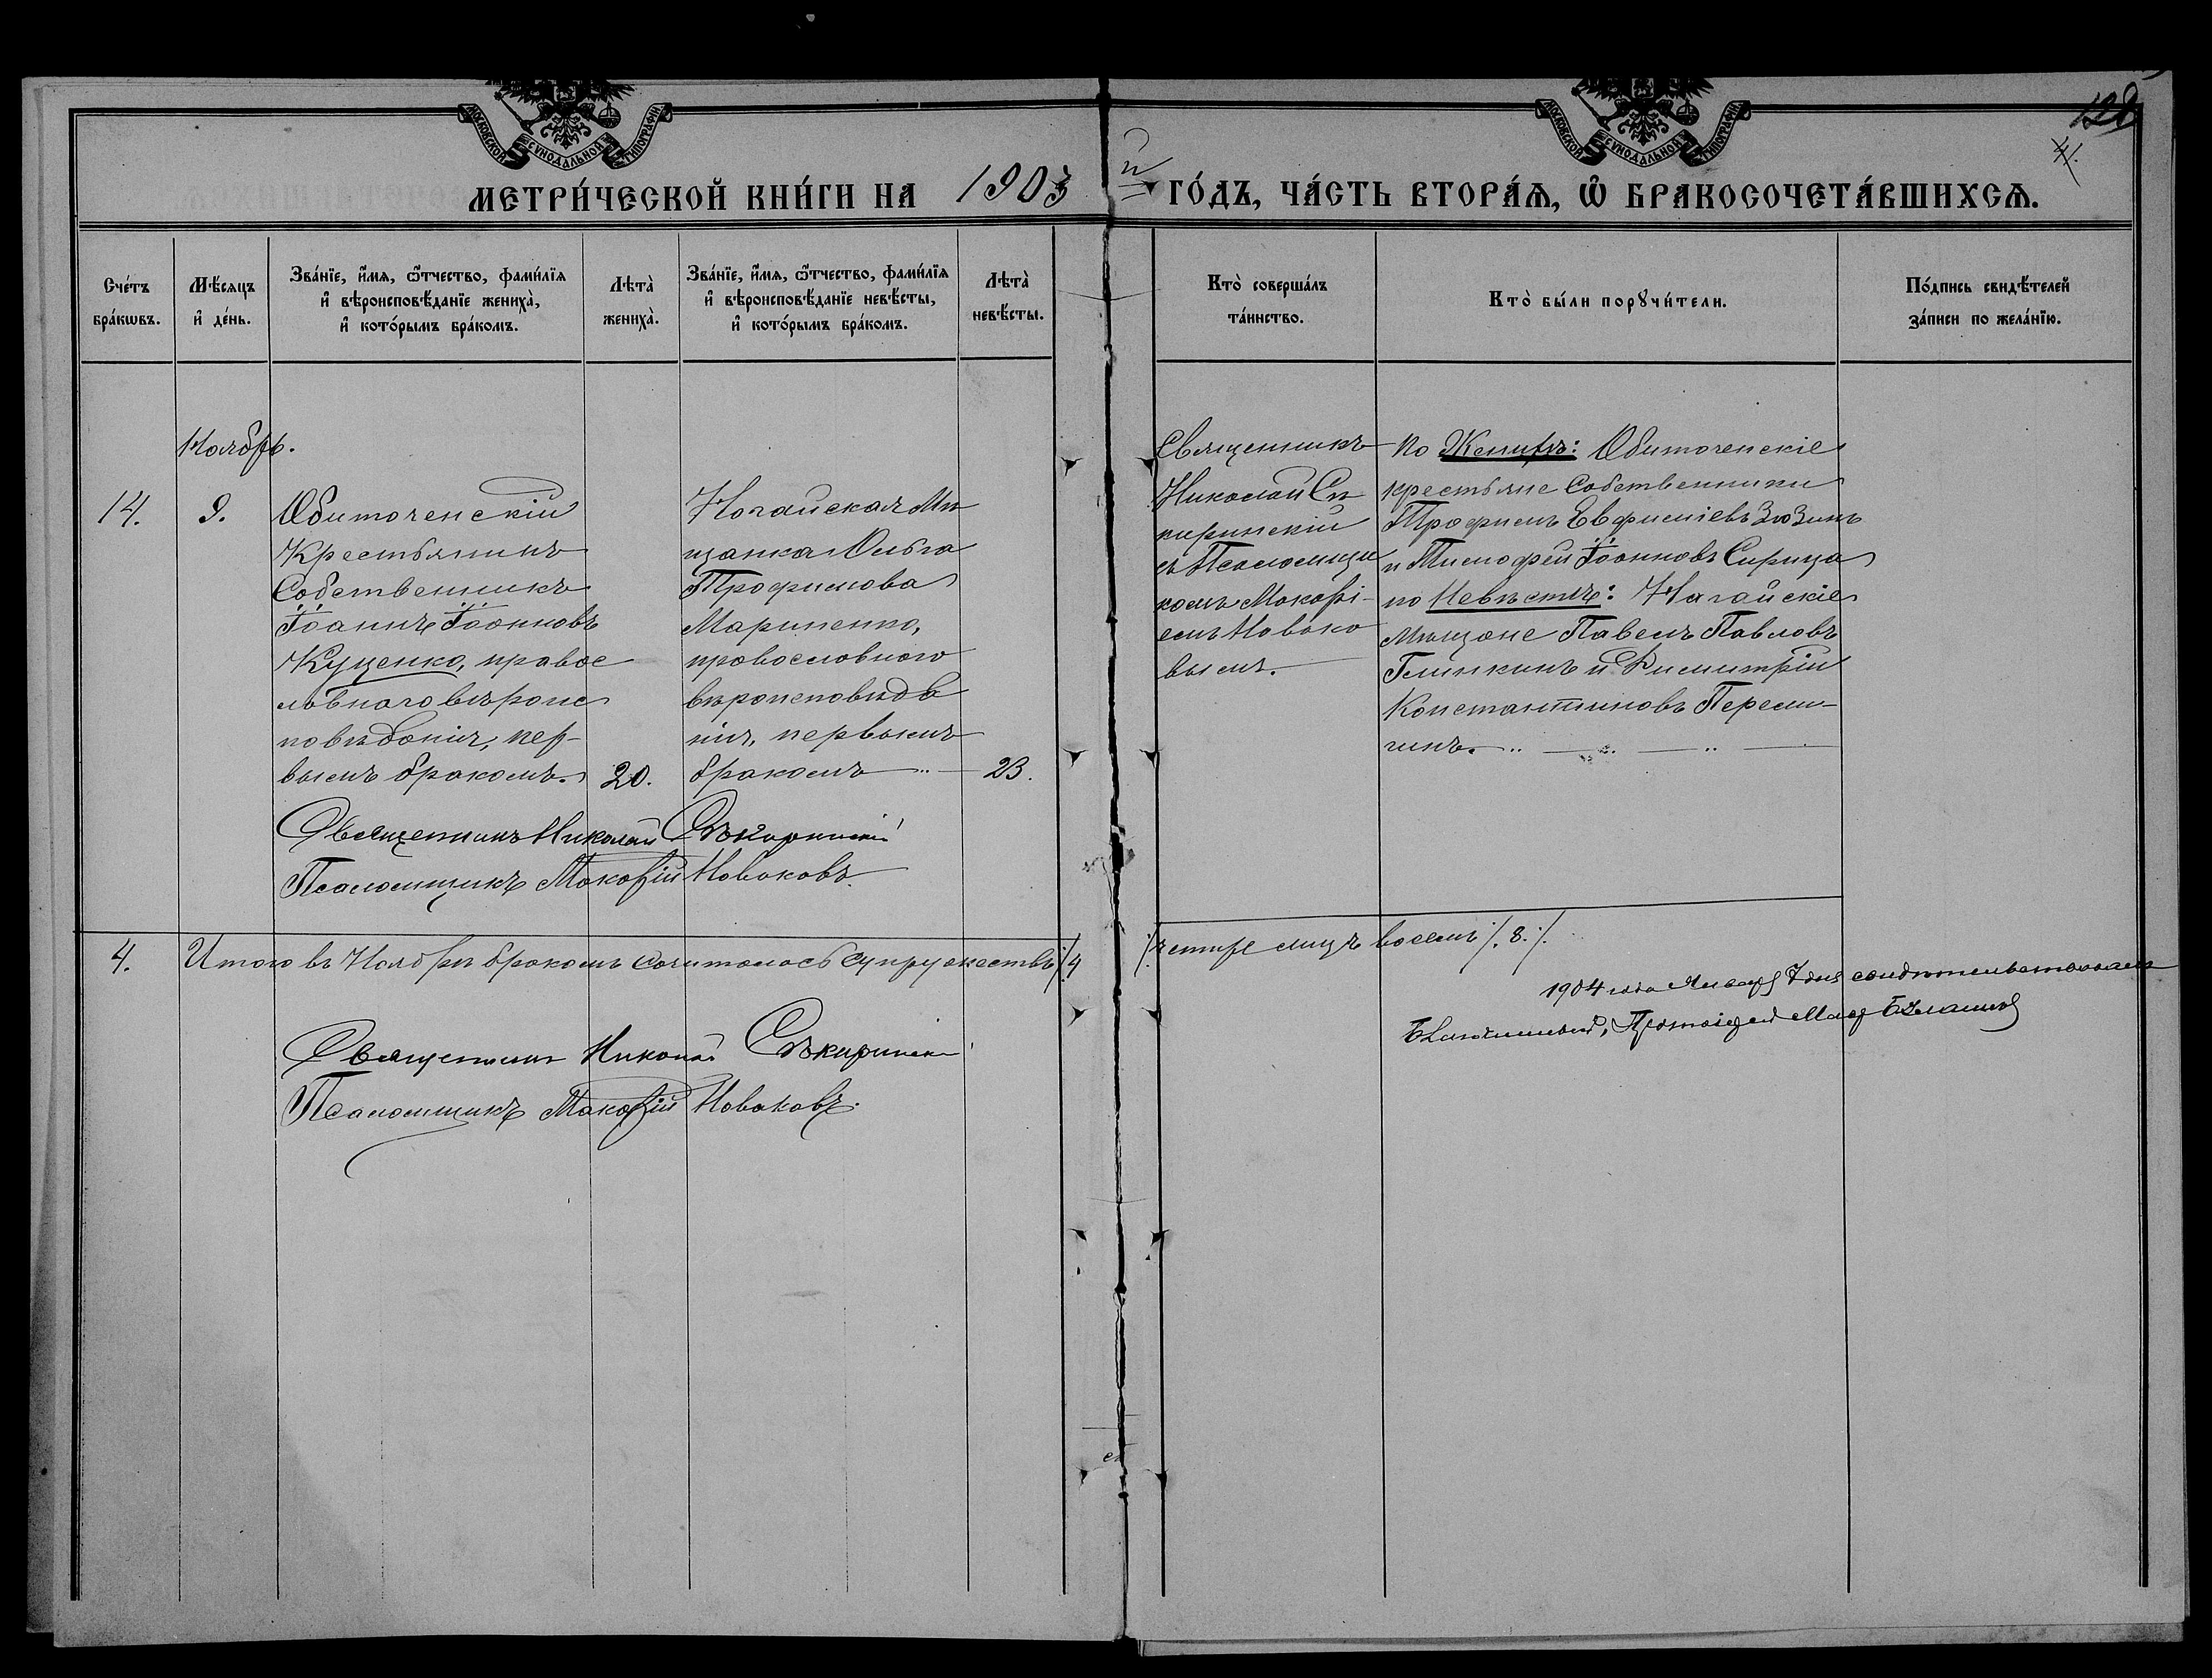 МОСКОВСКОЙ СѴНОДАЛЬНОЙ ТИПОГРАФІИ
МОСКОВСКОЙ СѴНОДАЛЬНОЙ ТИПОГРАФІИ
МЕТРИ́ЧЕСКОЙ КНИ́ГИ НА 1903 й ГО́ДЪ, ЧА́СТЬ ВТОРА́Ѧ, Ѡ҆ БРАКОСОЧЕТА́ВШИХСѦ.
Сче́тъ бра́кѡвъ.
Мѣ́сѧцъ и҆ де́нь.
Зва́нїе, и҆́мѧ, ѻ҆́тчество, фами́лїѧ
и҆ вѣроисповѣ́данїе жениха̀,
и҆ кото́рымъ бра́комъ.
Лѣта̀ жениха̀.
Зва́нїе, и҆́мѧ, ѻ҆́тчество, фами́лїѧ
и҆ вѣроисповѣ́данїе невѣ́сты,
и҆ кото́рымъ бра́комъ.
Лѣта̀ невѣ́сты.
Кто̀ соверша́лъ
та́инство.
Кто̀ бы́ли порꙋчи́тели.
По́дпись свидѣ́телей
за́писи по жела́нїю.
Ноябрь.
14.
9.
Обиточенскій
Крестьянинъ
Собственникъ
Іоаннъ Іоанновъ
Куценко, правос
лавнаго вѣроис
повѣданія, пер-
вымъ бракомъ.
20.
Ногайская Мѣ
щанка Ольга
Трофимова
Мариненко,
православнаго
вѣроисповѣда
нія, первымъ
бракомъ
23.
Священникъ
Николай Сѣ
киринскій
съ Псаломщи
комъ Макарі-
емъ Новако
вымъ.
По Женихѣ: Обиточенскіе
крестьяне Собственники
Трофимъ Евфиміевъ Зюзинъ
и Тимофей Іоанновъ Сирица
по Невѣстѣ: Нагайскіе
мѣщане Павелъ Павловъ
Глинкинъ и Димитрій
Константиновъ Пересы-
Священникъ Николай Сѣкиринскій
Псаломщикъ Макарій Новаковъ.
4.
Итого въ Ноябрѣ бракомъ сочиталось супружествъ /. 4
/. четыре лицъ восемь /. 8. /.
1904 года Января 7 дня свидѣтельствовалъ
Благочинный, Протоіерей
Священникъ Николай Сѣкиринскій
Псаломщикъ Макарій Новаковъ.